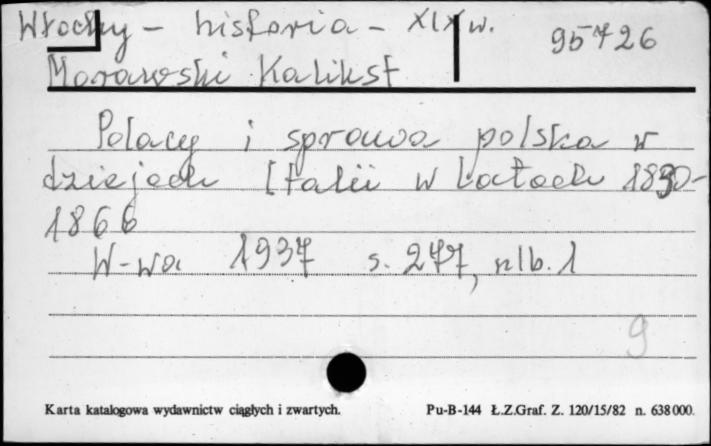 Włochy - historia - XIX w. 95426
Morawski Kalikst
Polacy i sprawa polska w
dziejach Italii w latach 1830-
1866
W-wa 1937 s. 247, nlb. 1
9
Karta katalogowa wydawnictw ciągłych i zwartych. Pu-B-144 Ł.Z.Graf. Z. 120/15/82 n. 638000.